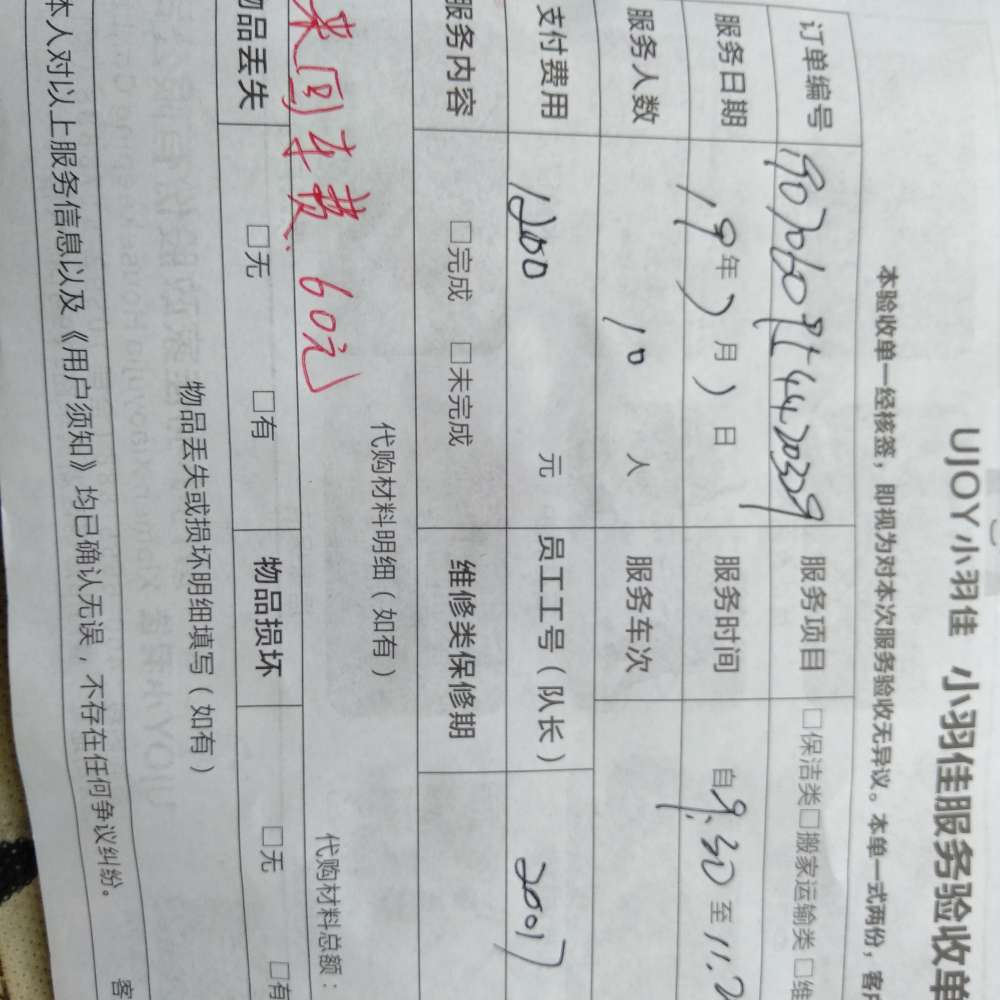 UJOY小羽佳 小羽佳服务验收单
本验收单一经核签，即视为对本次服务验收无异议。本单一式两份，客户
订单编号 服务项目 □保洁类□搬家运输类□维
服务日期 19年7月7日 服务时间 自9.30至11.2
服务人数 10人 服务车次
支付费用 1200元 员工工号（队长） 2017
服务内容 □完成 □未完成 维修类保修期
代购材料明细（如有）
来回车费 60元 代购材料总额：
物品丢失 □无 □有 物品损坏 □无 □有
物品丢失或损坏明细填写（如有）
本人对以上服务信息以及《用户须知》均已确认无误，不存在任何争议纠纷。
客